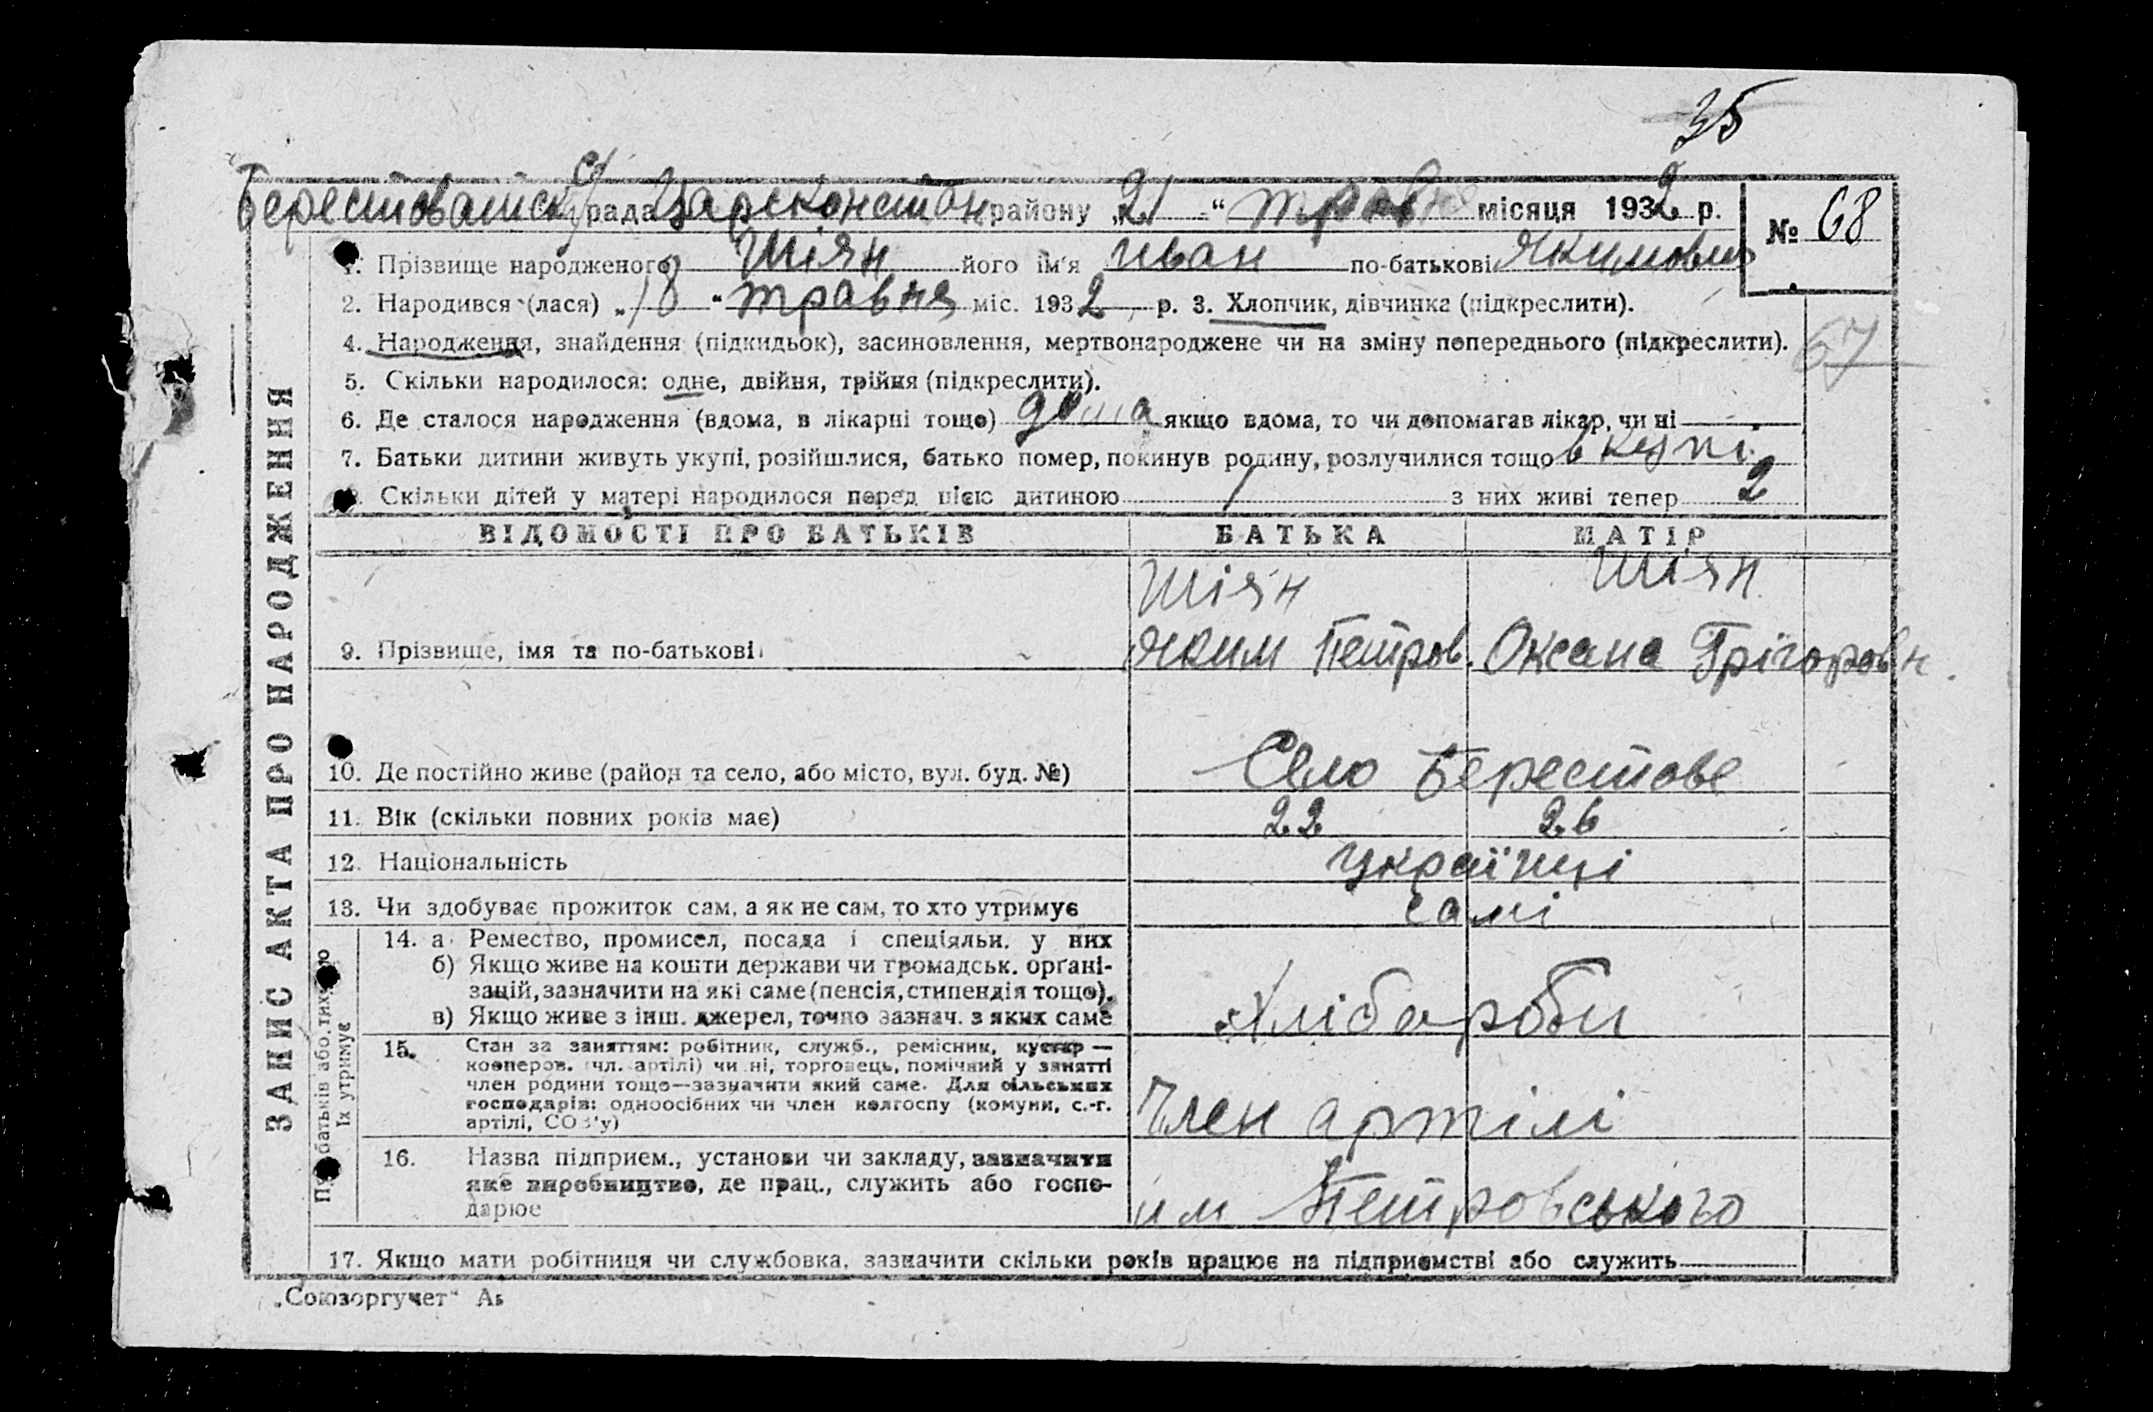 35
Берестоватськ с/рада Царсконстан району „21“ травня місяця 1932 р. № 68
1. Прізвище народженого Шіян його ім'я Иван по-батькові Якимович
2. Народився (лася) „18“ травня міс. 1932 р. 3. Хлопчик, дівчинка (підкреслити).
67
4. Народження, знайдення (підкидьок), засиновлення, мертвонароджене чи на зміну попереднього (підкреслити).
5. Скільки народилося: одне, двійня, трійня (підкреслити).
6. Де сталося народження (вдома, в лікарні тощо) дома якщо вдома, то чи допомагав лікар, чи ні
7. Батьки дитини живуть укупі, розійшлися, батько помер, покинув родину, розлучилися тощо в купі
Скільки дітей у матері народилося перед цією дитиною 1 з них живі тепер 2
ВІДОМОСТІ ПРО БАТЬКІВ БАТЬКА МАТІР
Шіян Шіян
9. Прізвище, імя та по-батькові Яким Петров. Оксана Грігоровн.
10. Де постійно живе (район та село, або місто, вул. буд. №) Село Берестове
11. Вік (скільки повних років має) 22 26
12. Національність українці
13. Чи здобуває прожиток сам, а як не сам, то хто утримує самі
14. а Ремество, промисел, посада і спеціяльн. у них
б) Якщо живе на кошти держави чи громадськ. орґані-
зацій, зазначити на які саме (пенсія, стипендія тощо).
в) Якщо живе з інш. джерел, точно зазнач. з яких саме хлібороби
15. Стан за заняттям: робітник, служб., ремісник, кустар —
кооперов. (чл. артілі) чи ні, торговець, помічний у занятті
член родини тощо—зазначити який саме. Для сільських
господарів: одноосібних чи член колгоспу (комуни, с.-г.
артілі, СОЗ'у) Член артілі
16. Назва підприєм., установи чи закладу, зазначити
яке виробництво, де прац., служить або госпо-
дарює им Петровського
17. Якщо мати робітниця чи службовка, зазначити скільки років працює на підприємстві або служить
ЗАПИС АКТА ПРО НАРОДЖЕННЯ
батьків або тих,
їх утримує
„Союзоргучет“